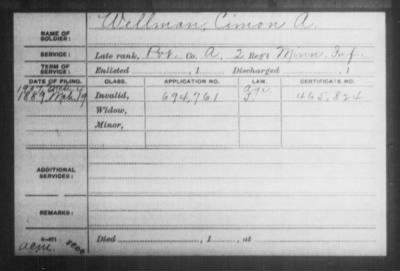 NAME OF SOLDIER: Wellman, Cimon A.
SERVICE: Late rank, Pvt. Co. A, 2 Reg't Minn. Inf.
TERM OF SERVICE: Enlisted , 1 Discharged , 1
DATE OF FILING. CLASS. APPLICATION NO. LAW. CERTIFICATE NO.
1907
1889 Invalid, 694,761 465,824
Widow,
Minor,
ADDITIONAL SERVICES:
REMARKS:
Died , 1 , at